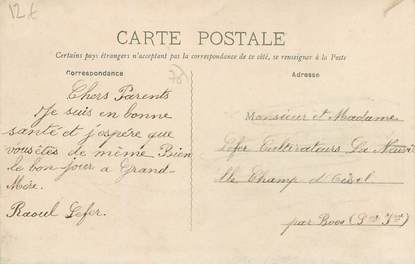 12€
CARTE POSTALE
Certains pays étrangers n'acceptant pas la correspondance de ce côté, se renseigner à la Poste
Correspondance
Adresse
Chers Parents
Je suis en bonne
santé et j'espère que
vous êtes de même Bien
le bonjour a Grand-
Mère.
Raoul Lefer.
Monsieur et Madame
Lefer Cultivateurs La Neuvi
lle Champ d'Oisel
par Boos (Sne Infre)